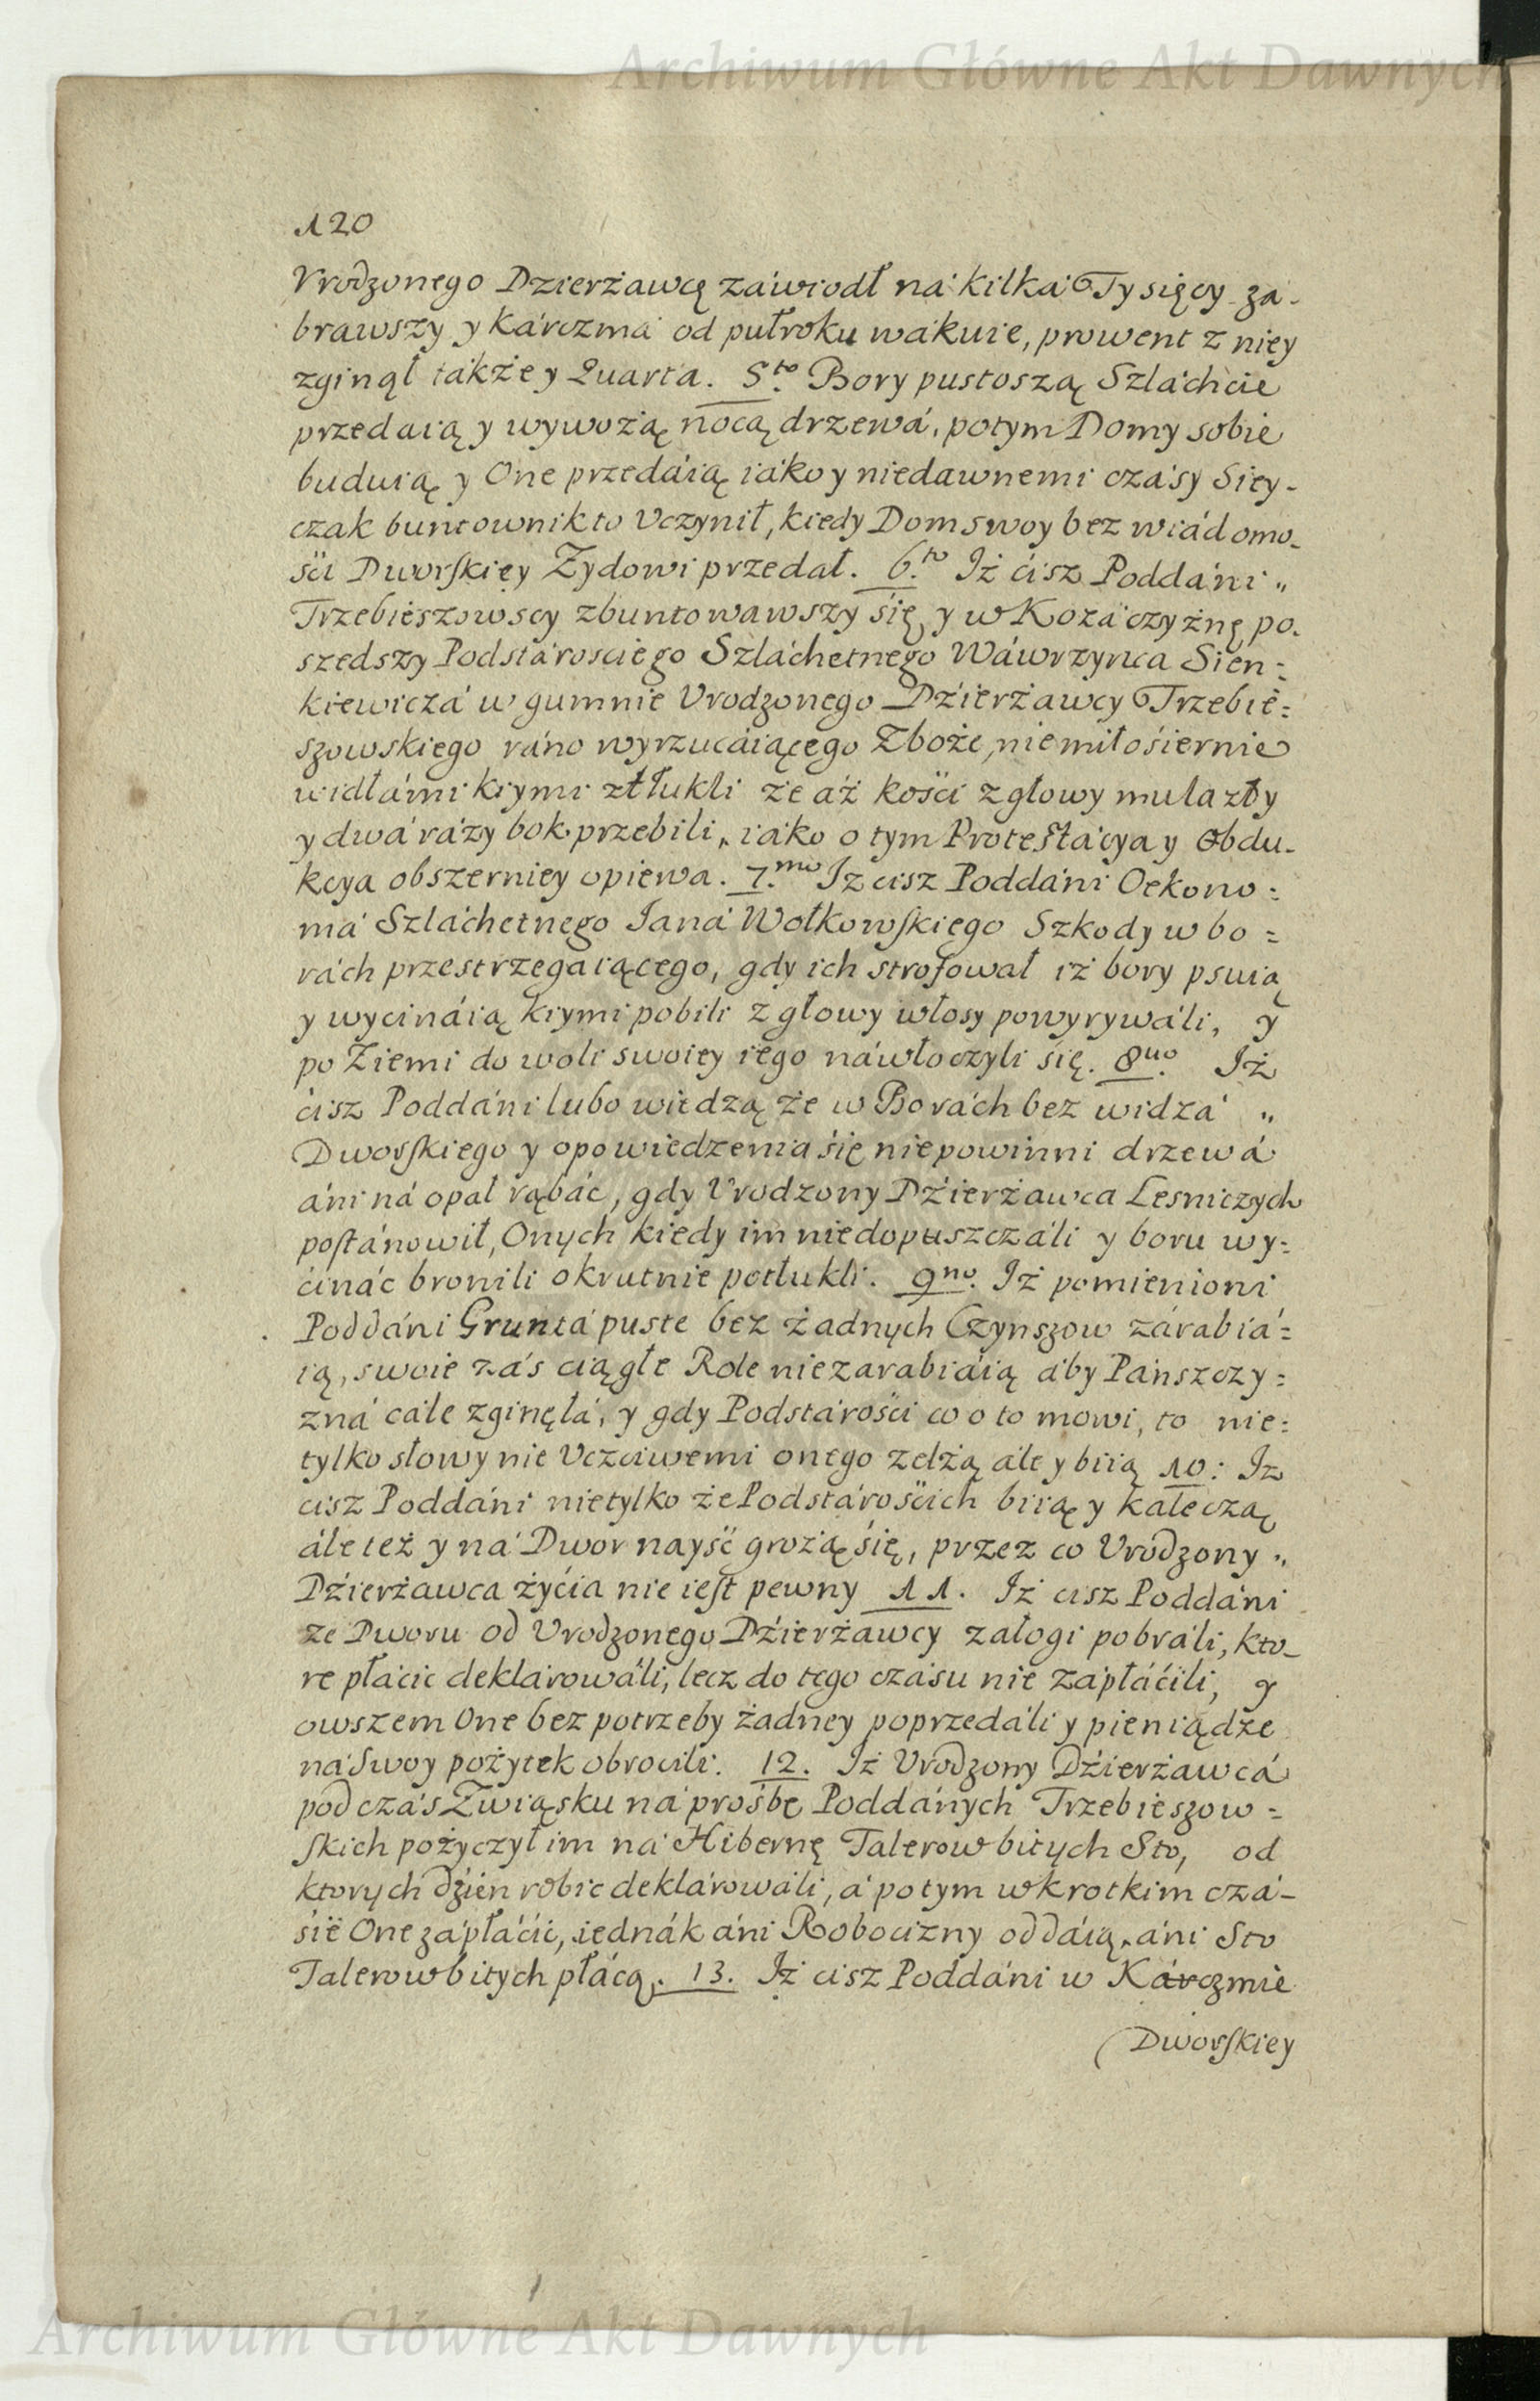 Archiwum Główne Akt Dawnych
120
Vrodzonego Dzierżawcę záwiodł ná kilká Tysięcy za-
brawszy y Kárczmá od pułroku wákuie, prowent z niey
zginął tákże y Quarta. 5.to Bory pustoszą Szláchcie
przedaią y wywożą nocą drzewá, potym Domy sobie
buduią y One przedáią iáko y niedawnemi czásy Siey-
czak buntownik to Vczynił, kiedy Dom swoy bez wiádomo-
ści Dworſkiey Żydowi przedał. 6.to Iż ciż Poddáni „
Trzebieszowscy zbuntowawszy się, y w Kozáczyżnę po-
szedszy Podstárosciego Szláchetnego Wáwrzyńca Sien=
kiewiczá w gumnie Vrodzonego Dźierżawcy Trzebie=
szowskiego ráno wyrzucáiącego Zboże, niemiłośiernie
widłámi kiymi ztłukli że áż kości z głowy mulazły
y dwá rázy bok przebili, iáko o tym Proteſtácya y Obdu-
kcya obszerniey opiewa. 7.mo Iż cisz Poddáni Oekono=
má Szláchetnego Janá Wołkowſkiego Szkody w bo=
rách przestrzegáiącego, gdy ich strofował iż bory psuią
y wycináią kiymi pobili z głowy włosy powyrywáli, y
po Ziemi do woli swoiey iego náwłoczyli się. 8uo. Iż
cisz Poddáni lubo wiedzą że w Borách bez widzá „
Dworſkiego y opowiedzenia śię niepowinni drzewá
áni ná opał rąbáć, gdy Vrodzony Dźierżawca Lesniczych
poſtánowił, Onych kiedy im niedopuszczáli y boru wy=
cináć bronili okrutnie potłukli. 9no. Iż pomienioni
Poddáni Gruntá puste bez żadnych Czynszow zárabiá=
ią, swoie zás ciągłe Role niezarabiáią áby Pánszczy=
zná cále zginęłá, y gdy Podstárości co o to mowi, to nie=
tylko słowy nie Vczciwemi onego zelżą ále y biią 10: Iż
cisz Poddáni nietylko że Podstárościch biią y káleczą
ále też y ná Dwor nayść grożą śię, przez co Vrodzony „
Dźierżawca żyćia nie ieſt pewny 11. Iż cisz Poddáni
ze Dworu od Vrodzonego Dźierżawcy załogi pobráli, kto-
re płácic deklárowáli, lecz do tego czásu nie zápłáćili, y
owszem One bez potrzeby żadney poprzedáli y pieniądze
ná Swoy pożytek obrocili. 12. Iż Vrodzony Dźierżawcá
pod czás Związku ná prośbę Poddánych Trzebieszow=
ſkich pożyczył im ná Hibernę Talerow bitych Sto, od
ktorych dźień robic deklárowáli, á potym w krotkim czá-
śie One zápłáćić, iednák áni Robocizny oddáią, áni Sto
Talerow bitych płácą. 13. Iż cisz Poddáni w Kárczmie
Dworſkiey
Archiwum Główne Akt Dawnych